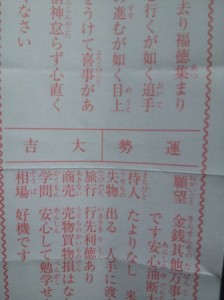 去り福徳集まり
と行くが如く追手
の進むが如く目上
をうけて喜事があ
信神怠らず心直く
なさい
運勢 大吉
願望 金銭其他万事
です安心油断
待人 たよりなし 来
失物 出る 人手に渡
旅行 行先利徳あり
商売 売物買物損はな
学問 安心して勉学せ
相場 好機です